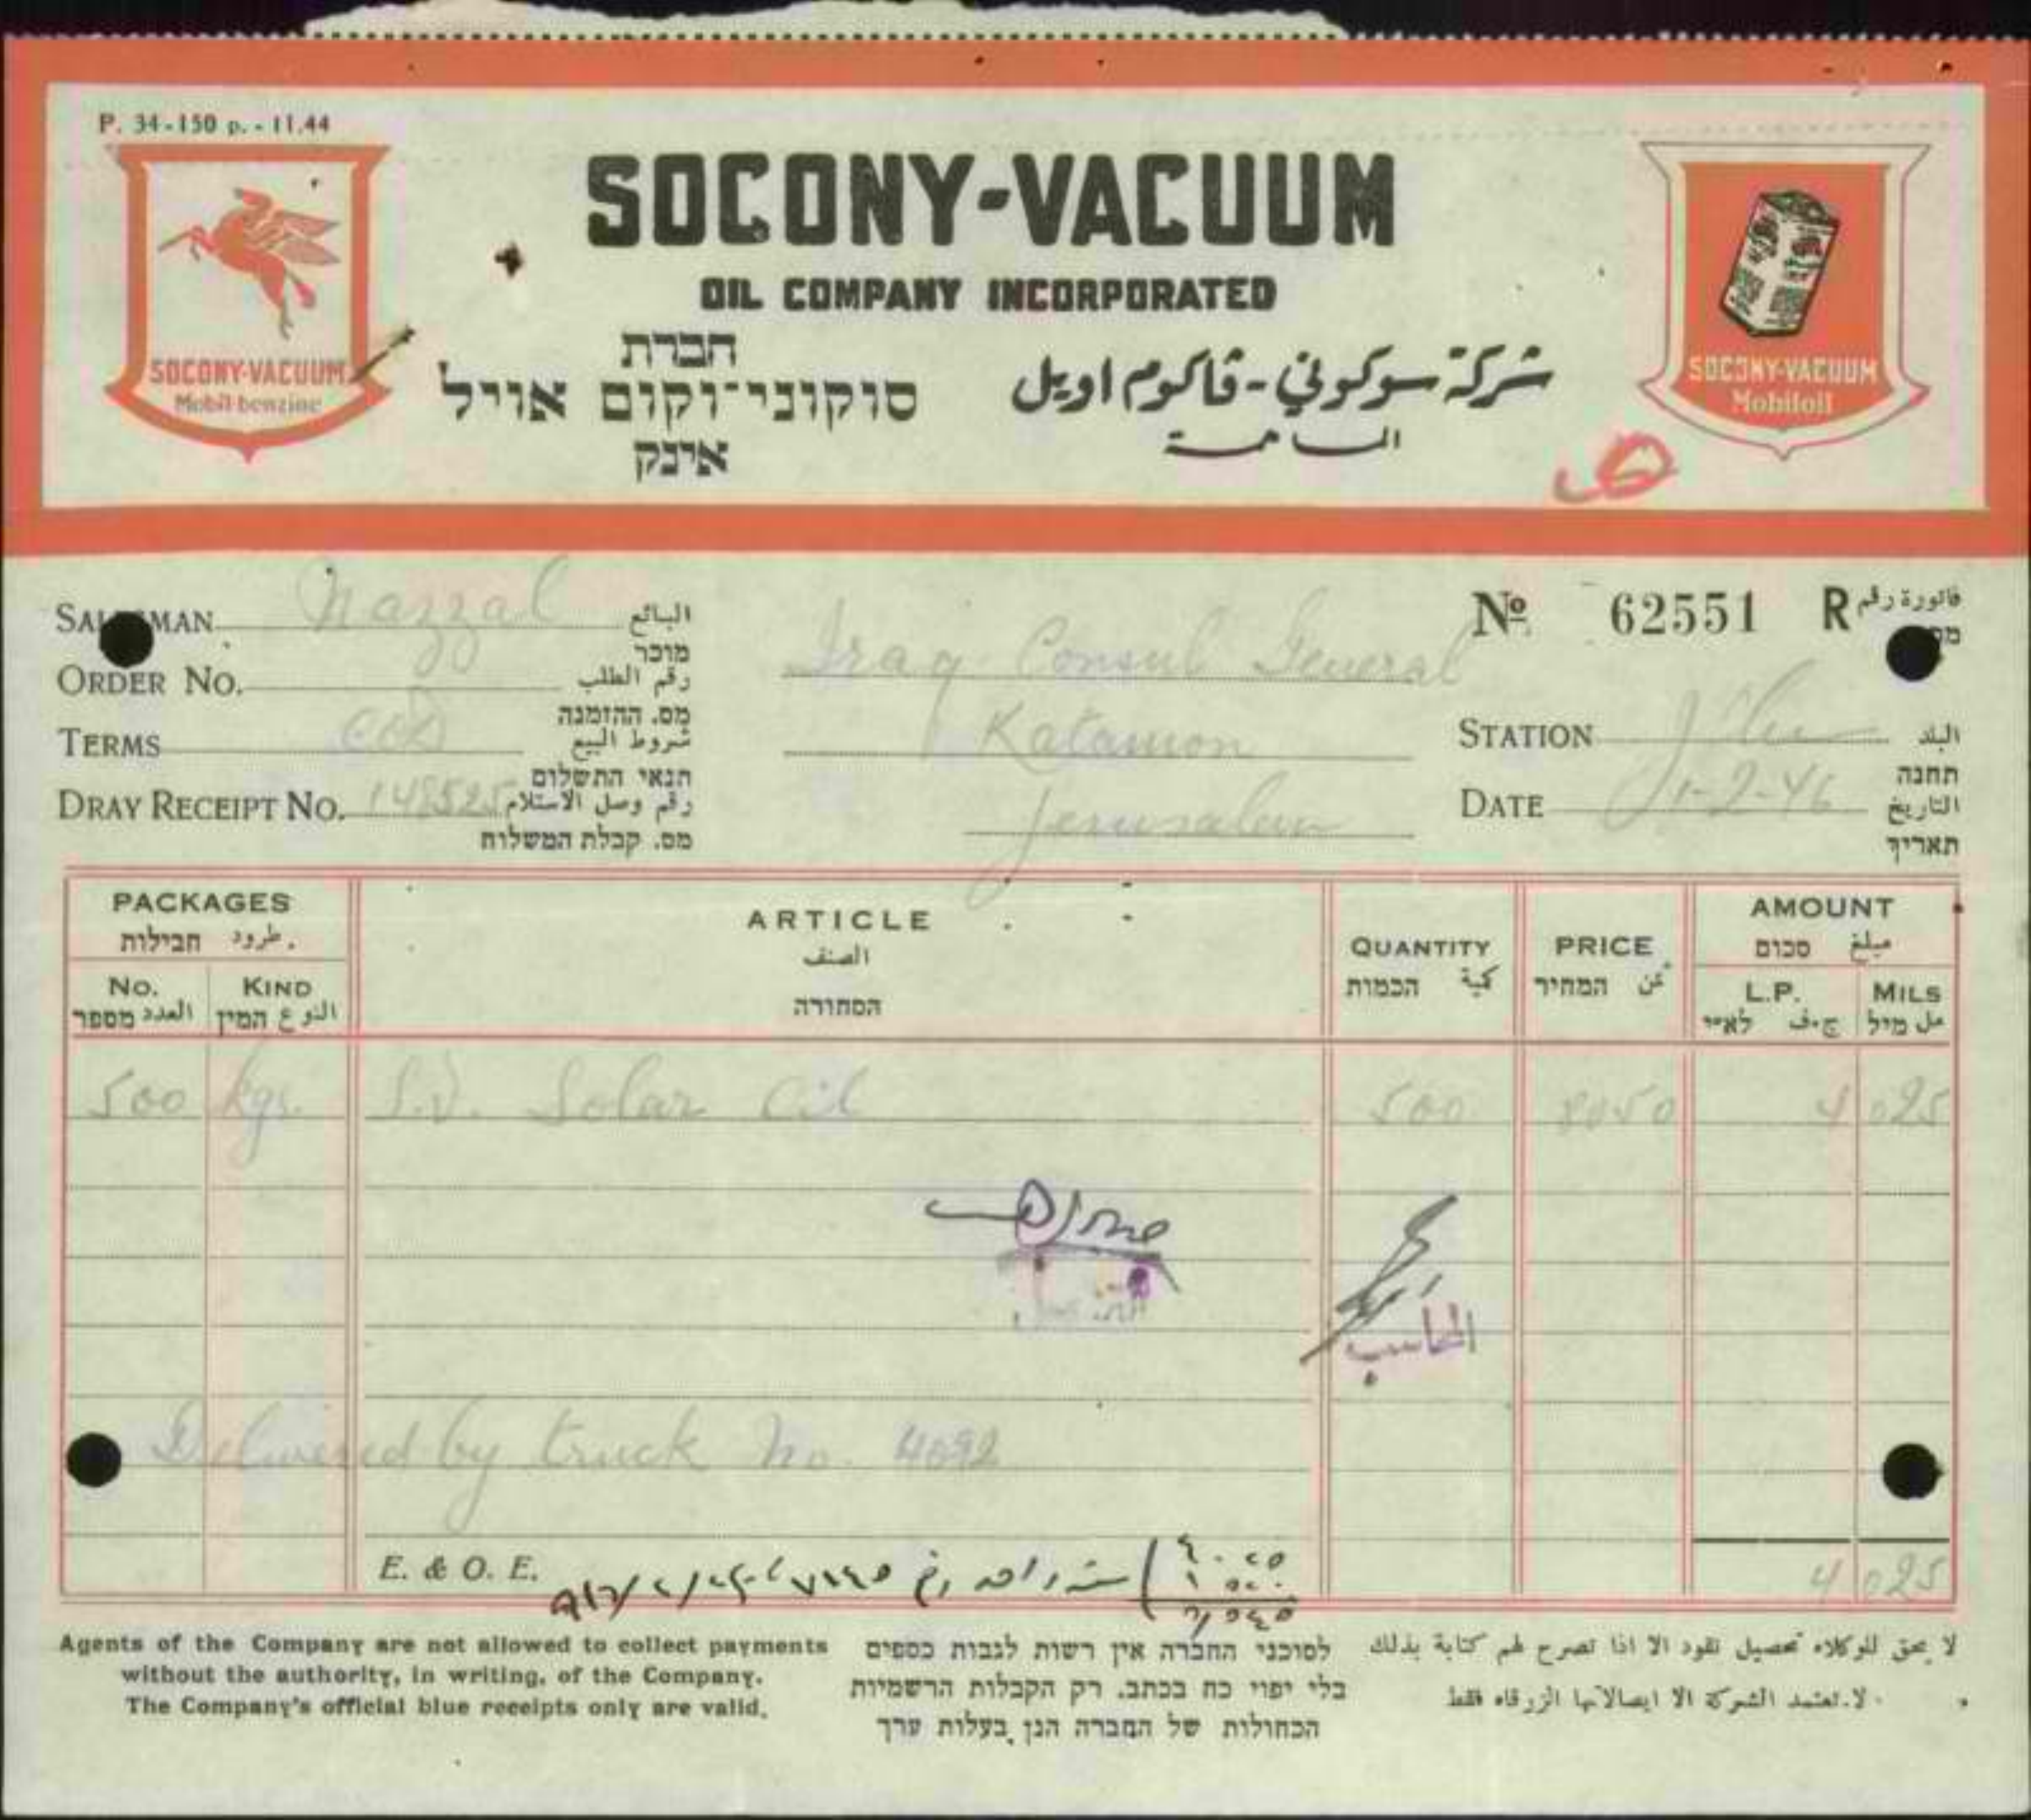 P. 34-150 p. - 11.44
SOCONY-VACUUM
OIL COMPANY INCORPORATED
חברת
סוקוני־וקום אויל
אינק
شركة سوكوني - ڤاكوم اويل
SOCONY-VACUUM
Mobil-benzine
SOCONY-VACUUM
Mobiloil
SALESMAN Nazzal البائع
מוכר
ORDER No. رقم الطلب
מס. ההזמנה
TERMS COD شروط البيع
תנאי התשלום
DRAY RECEIPT No. 148525 رقم وصل الاستلام
מס. קבלת המשלוח
Iraq Consul General
Katamon
Jerusalem
No 62551 R فاتورة رقم
STATION البلد
תחנה
DATE 1-2-46 التاريخ
תאריך
PACKAGES
חבילות طرود
No. KIND
העדד
מספר العدد המין النوع
ARTICLE
الصنف
הסחורה
QUANTITY
הכמות كمية
PRICE
המחיר
AMOUNT
סכום مبلغ
L.P. MILS
לא״י ج.ف מיל مل
500 kgs. S.V. Solar Oil 500 8050 4 025
المحاسب
Delivered by truck No. 4092
E. & O. E.
4 025
Agents of the Company are not allowed to collect payments
without the authority, in writing, of the Company.
The Company's official blue receipts only are valid.
לסוכני החברה אין רשות לגבות כספים
בלי יפוי כח בכתב. רק הקבלות הרשמיות
הכחולות של החברה הנן בעלות ערך
لا يحق للوكلاء تحصيل نقود الا اذا تصرح لهم كتابة بذلك
لا تعتمد الشركة الا ايصالاتها الزرقاء فقط